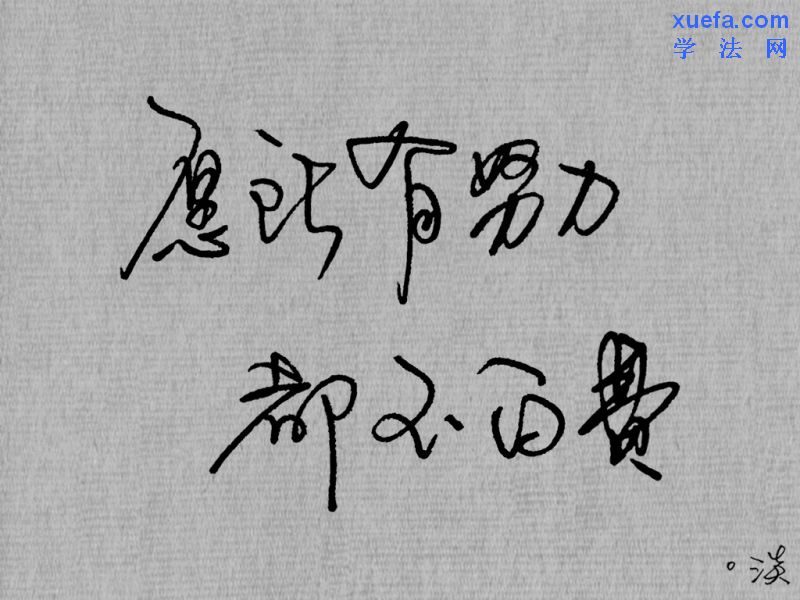 xuefa.com
学法网
愿所有努力
都不白费
。淡